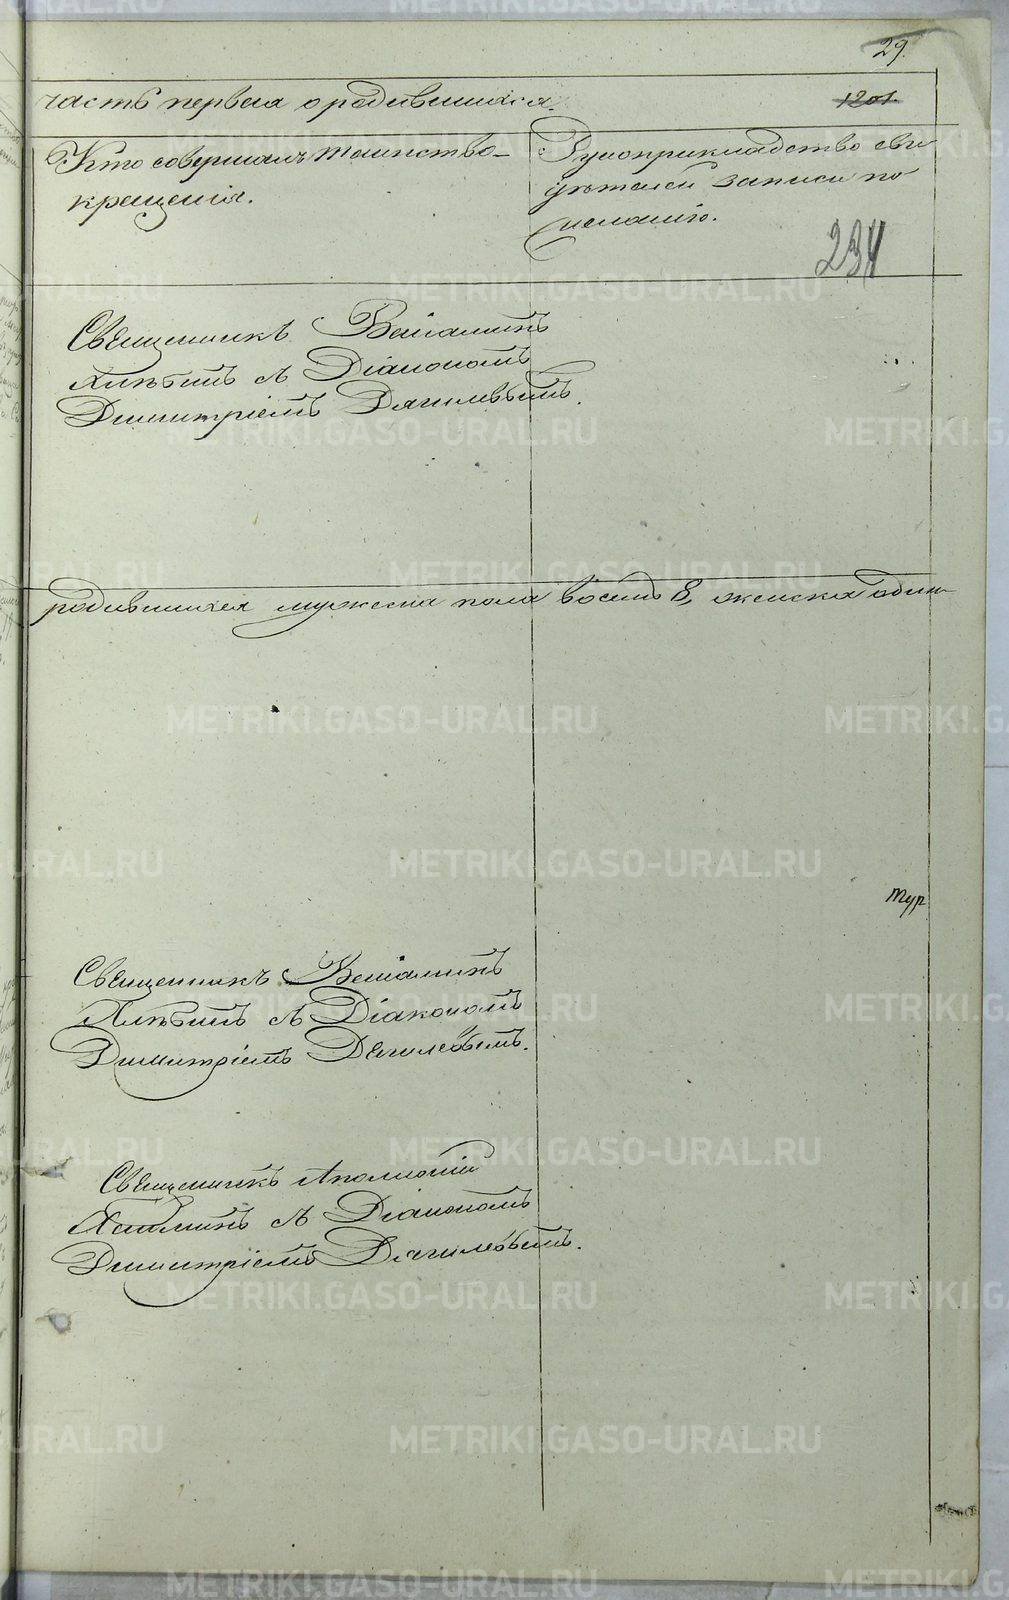 29.
часть первая о родившихся.
1201.
Кто совершалъ таинство
крещенія.
Рукоприкладство сви
дѣтелей записи по
желанію.
234
Священникъ Веніаминъ
съ Діакономъ
Димитріемъ Дягилевымъ.
родившихся мужеска пола восемь 8, женска один
Священникъ Веніаминъ
съ Діакономъ
Димитріемъ Дягилевымъ.
Священникъ Аполлоній
съ Діакономъ
Димитріемъ Дягилевымъ.
METRIKI.GASO-URAL.RU